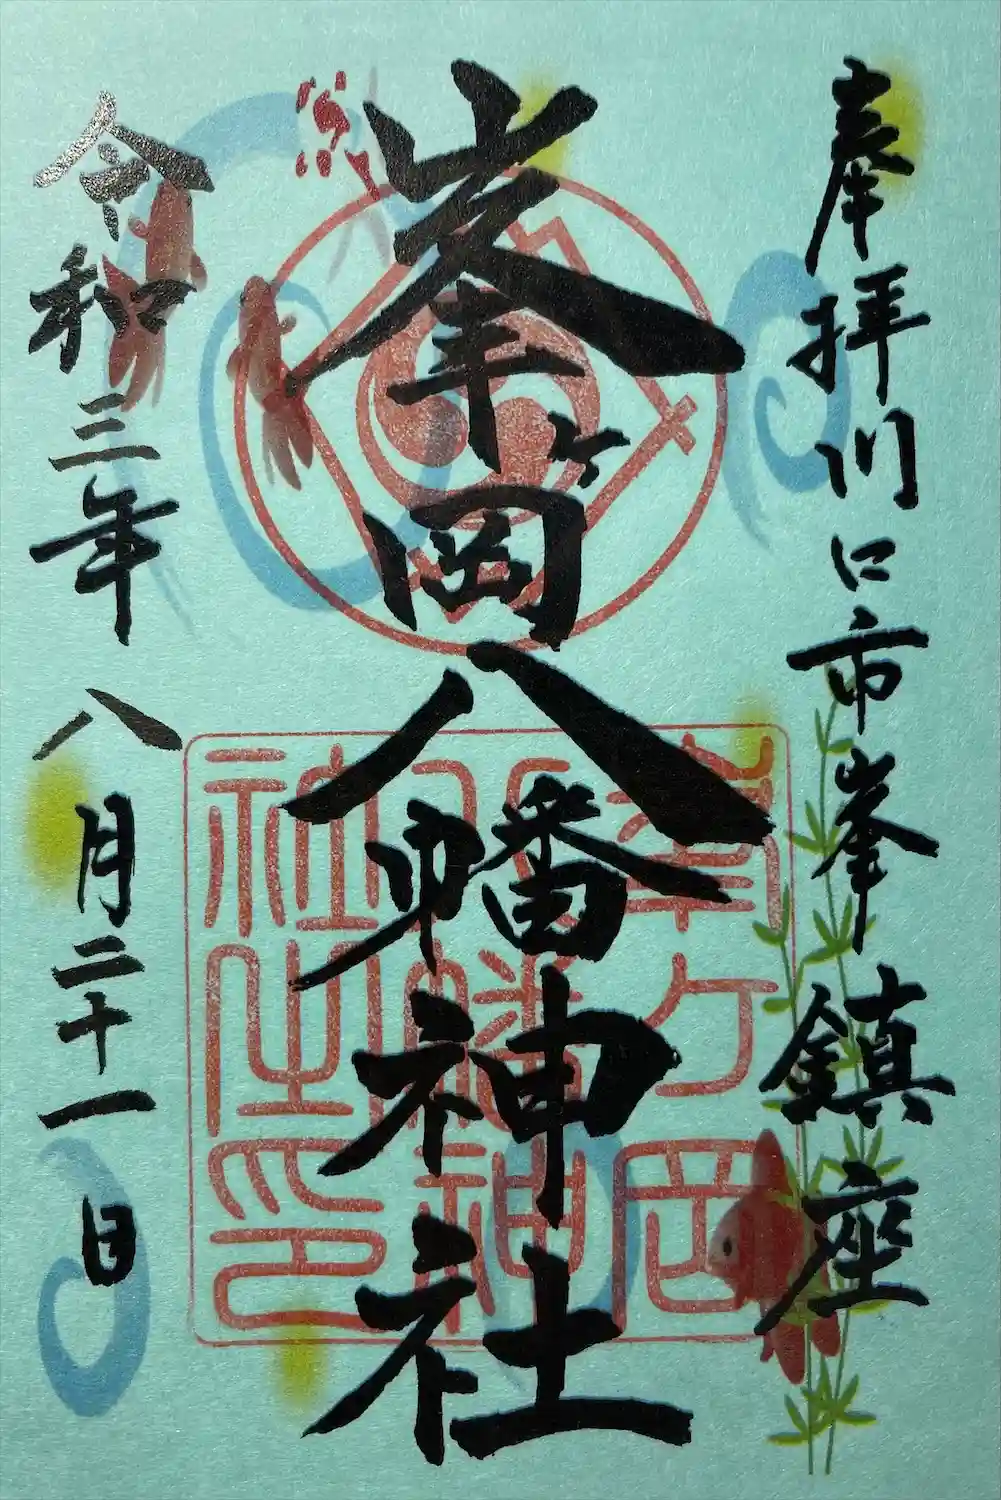 奉拝川口市峯鎮座
峯ヶ岡八幡神社
令和三年八月二十一日
峯ヶ岡
八幡神
社之印